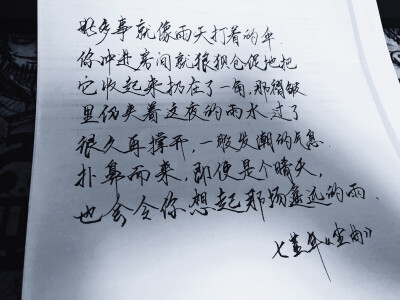 很多事就像雨天打着的伞.
你冲进房间就狼狈仓促地把
它收起来扔在了一角,那褶皱
里仍夹着这夜的雨水.过了
很久再撑开,一股发潮的气息
扑鼻而来,即使是个晴天,
也会令你想起那场遥远的雨.
七堇年《尘曲》